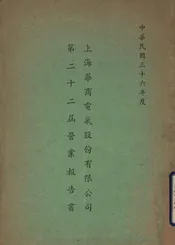 中華民國三十六年度
上海華商電氣股份有限公司
第二十二屆營業報告書